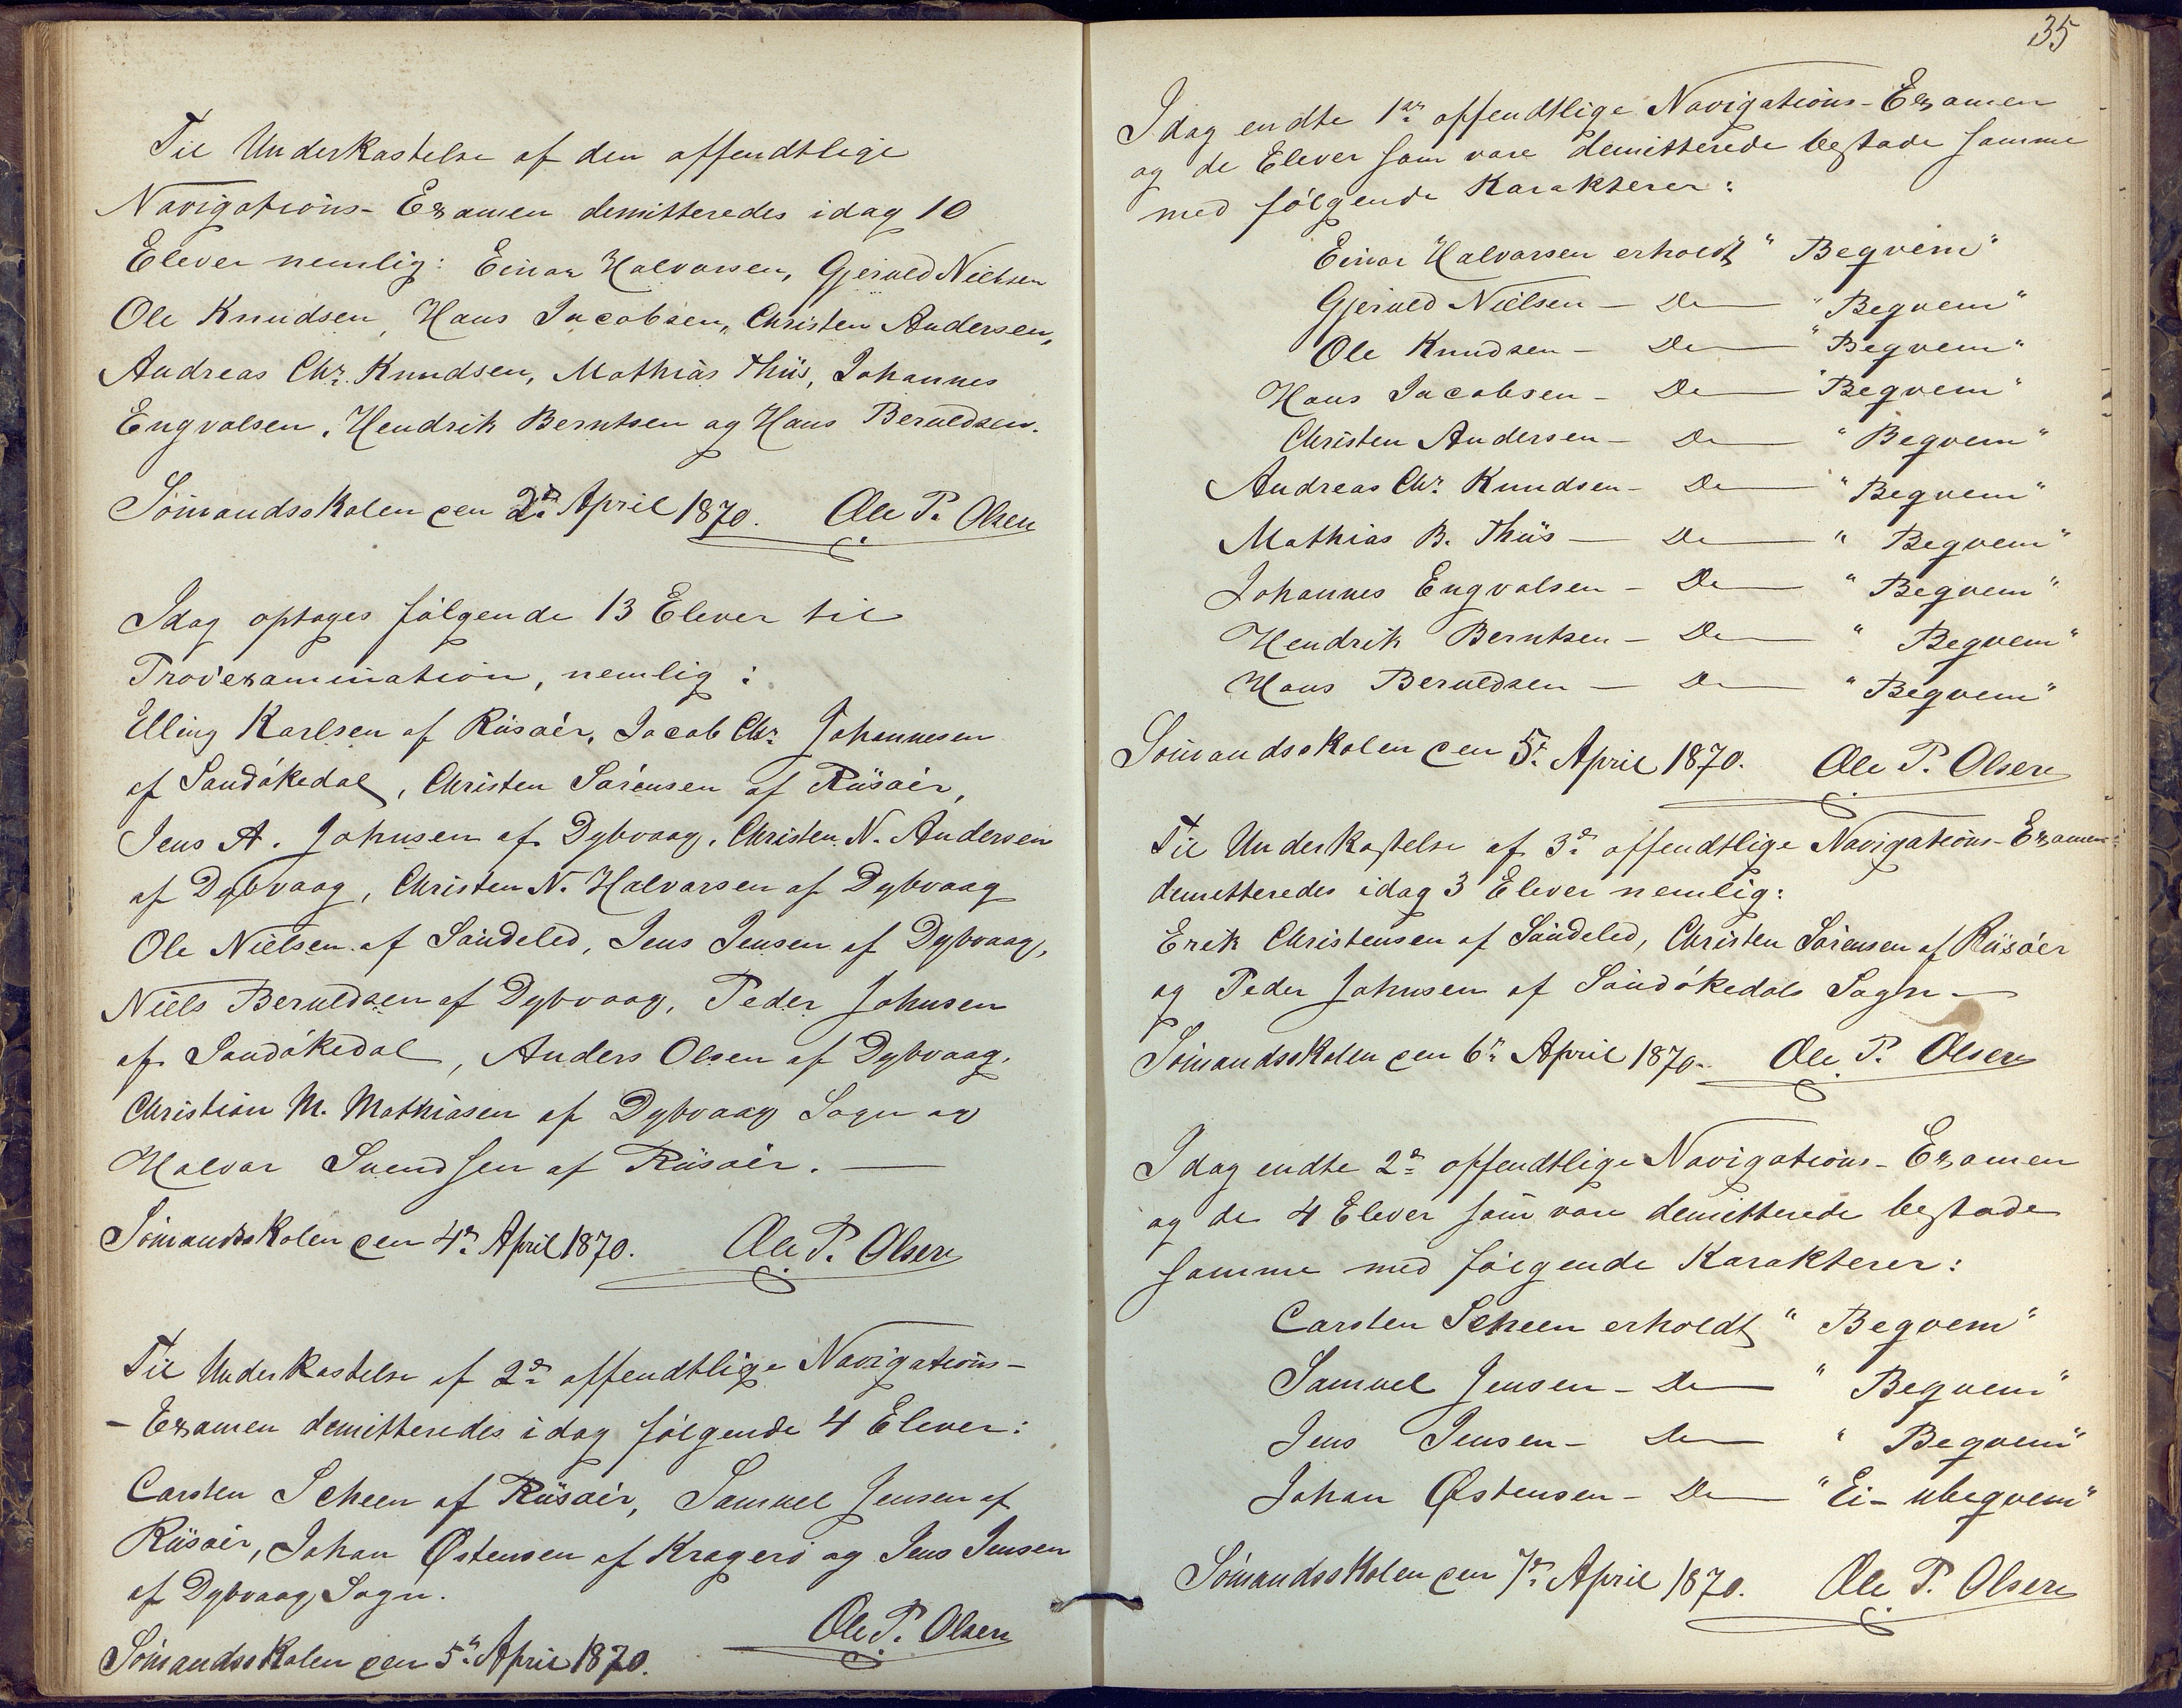 Til Underkastelse af den offendtlige
Navigations-Examen demitteredes idag 10
Elever nemlig: Einar Halvorsen, Gjeruld Nielsen
Ole Knudsen, Hans Jacobsen, Christen Andersen,
Andreas Chr. Knudsen, Mathias Thiis, Johannes
Engvalsen, Hendrik Berntsen og Hans Beruldsen.
Sömandsskolen den 2den April 1870. Ole P. Olsen
Idag optages følgende 13 Elever til
Prövexamination, nemlig:
Elling Karlsen af Riisöer, Jacob Chr. Johannesen
af Sandökedal, Christen Sörensen af Riisöer,
Jens A. Johnsen af Dybvaag, Christen N. Andersen
af Dybvaag, Christen N. Halvorsen af Dybvaag
Ole Nielsen af Söndeled, Jens Jensen af Dybvaag,
Niels Beruldsen af Dybvaag, Peder Johnsen
af Sandökedal, Anders Olsen af Dybvaag,
Christian M. Mathiasen af Dybvaag Sogn og
Halvor Svendsen af Riisöer. —
Sömandsskolen den 4de April 1870. Ole P. Olsen
Til Underkastelse af 2den offendtlige Navigations-
- Examen demitteredes idag følgende 4 Elever:
Carsten Scheen af Riisöer, Samuel Jensen af
Riisöer, Johan Østensen af Kragerö og Jens Jensen
af Dybvaag Sogn.
Ole P. Olsen
Sömandsskolen den 5te April 1870.
35
Idag endte 1ste offendtlige Navigations-Examen
og de Elever som vare demitterede bestode samme
med følgende Karakterer:
Einar Halvorsen erholdt "Beqvem"
Gjeruld Nielsen — Do — "Beqvem"
Ole Knudsen — Do — "Beqvem"
Hans Jacobsen — Do — "Beqvem"
Christen Andersen — Do — "Beqvem"
Andreas Chr. Knudsen — Do — "Beqvem"
Mathias B. Thiis — Do — "Beqvem"
Johannes Engvalsen — Do — "Beqvem"
Hendrik Berntsen — Do — "Beqvem"
Hans Beruldsen — Do — "Beqvem"
Sömandsskolen den 5te April 1870. Ole P. Olsen
Til Underkastelse af 3de offendtlige Navigations-Examen
demitteredes idag 3 Elever nemlig:
Erik Christensen af Söndeled, Christen Sörensen af Riisöer
og Peder Johnsen af Sandökedals Sogn —
Sömandsskolen den 6te April 1870. Ole P. Olsen
Idag endte 2den offendtlige Navigations-Examen
og de 4 Elever som vare demitterede bestode
samme med følgende Karakterer:
Carsten Scheen erholdt "Beqvem"
Samuel Jensen — Do — "Beqvem"
Jens Jensen — Do — "Beqvem"
Johan Østensen — Do — "Ei-ubeqvem"
Sömandsskolen den 7de April 1870. Ole P. Olsen